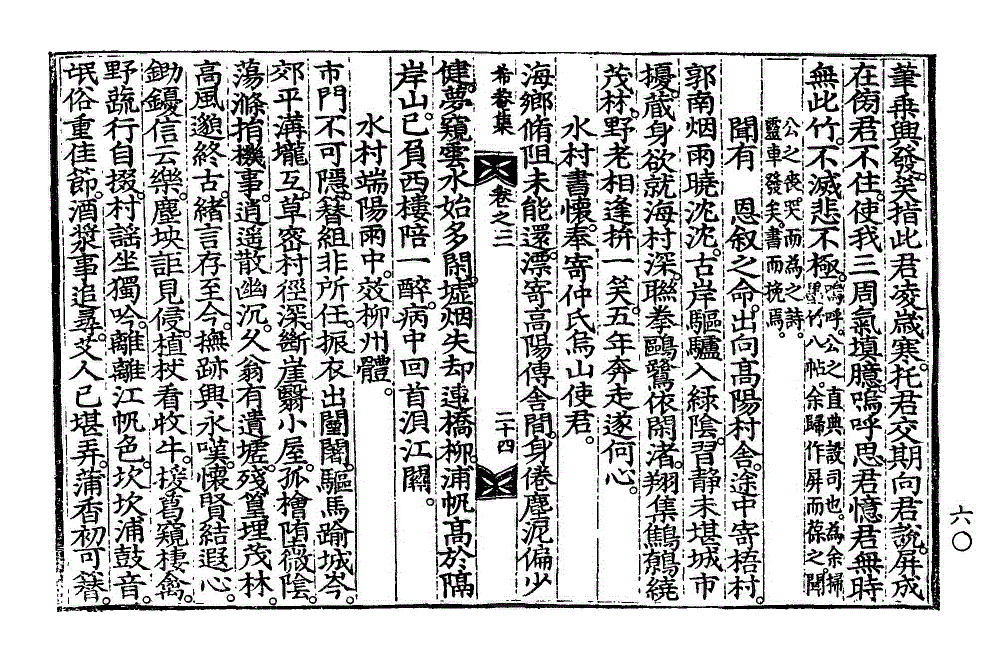 筆乘興發笑指此君凌歲寒托君交期向君說屛成
在傍君不住使我三周氣塡臆嗚呼思君憶君無時
無此竹不滅悲不極嗚呼公之直典設司也爲余掃
墨竹八帖余歸作屛而葆之聞
公之喪哭而爲之詩
靈車發矣書而挽焉
聞有 恩叙之命出向高陽村舍途中寄梧村
郭南烟雨曉沈沈古岸驅驢入綠陰習靜未堪城市
擾藏身欲就海村深聯拳鷗鷺依閑渚翔集鷦鷯繞
茂林野老相逢拚一笑五年奔走遂何心
水村書懷奉寄仲氏烏山使君
海鄕脩阻未能還漂寄高陽傳舍間身倦塵泥偏少
希菴集 卷之三 二十四
健夢窺雲水始多閑墟烟失却連橋柳浦帆高於隔
岸山已負西樓陪一醉病中回首浿江關
水村端陽雨中效柳州體
市門不可隱簪組非所任振衣出闉闍驅馬踰城岑
郊平溝壠互草密村徑深斷崖翳小屋孤檜墮微陰
蕩滌捐機事逍遥散幽沉久翁有遺墟殘篁埋茂林
高風邈終古緖言存至今撫跡興永嘆懷賢結遐心
鋤耰信云樂塵坱詎見侵植杖看收牛援葛窺棲禽
野蔬行自掇村謠坐獨吟離離江帆色坎坎浦鼓音
氓俗重佳節酒漿事追尋艾人已堪弄蒲香初可簪
六〇